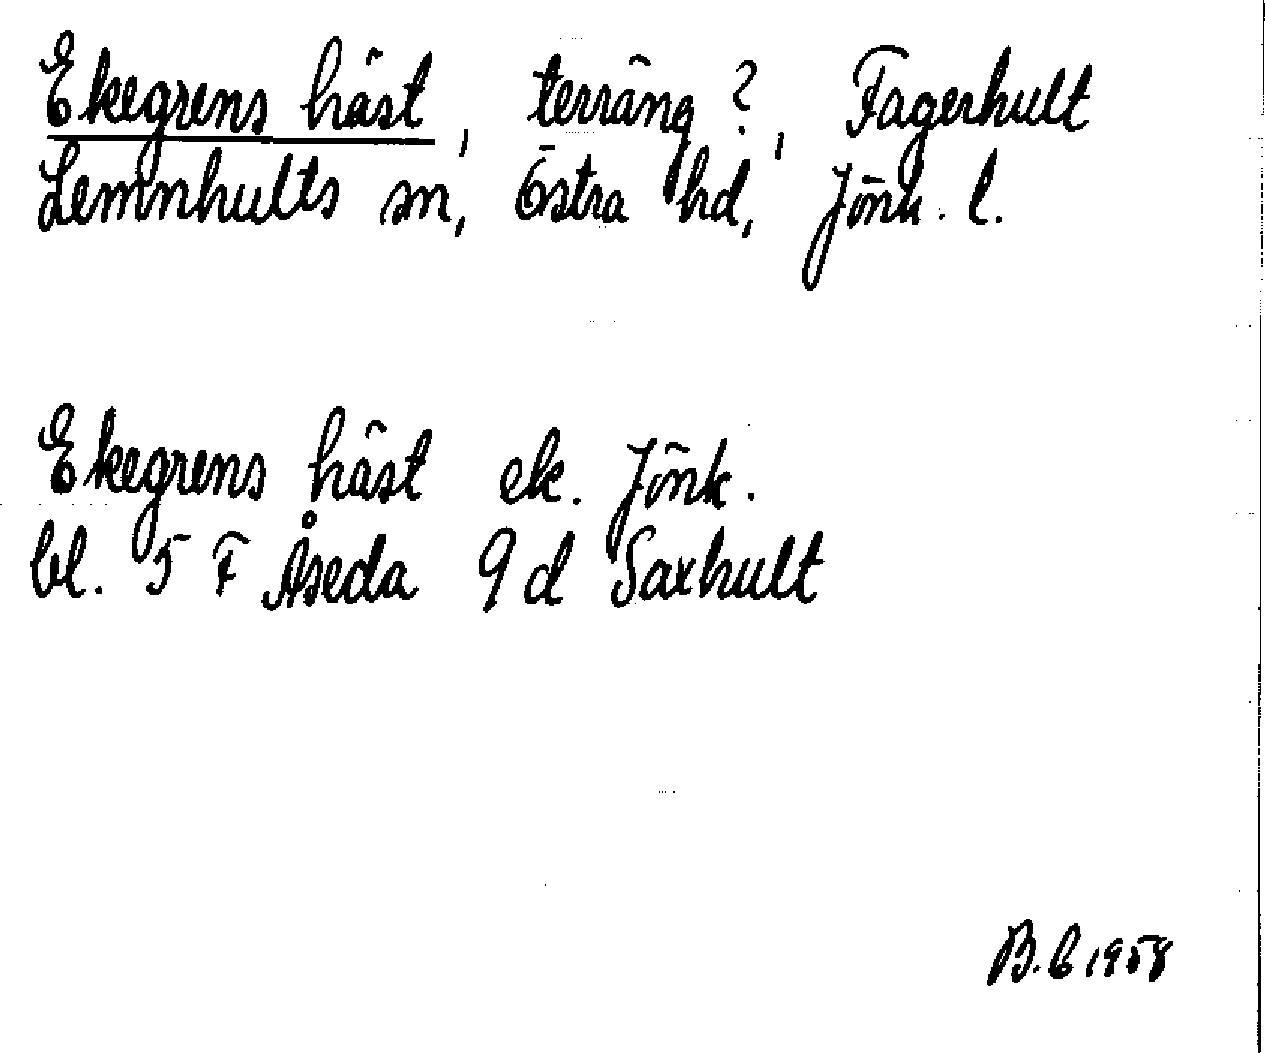 Ekegrens häst, terräng?, Fagerhult
Lemnhults sn, Östra hd, Jönk. l.
Ekegrens häst ek. Jönk.
bl. 5 F Åseda 9 d Saxhult
B. 1958